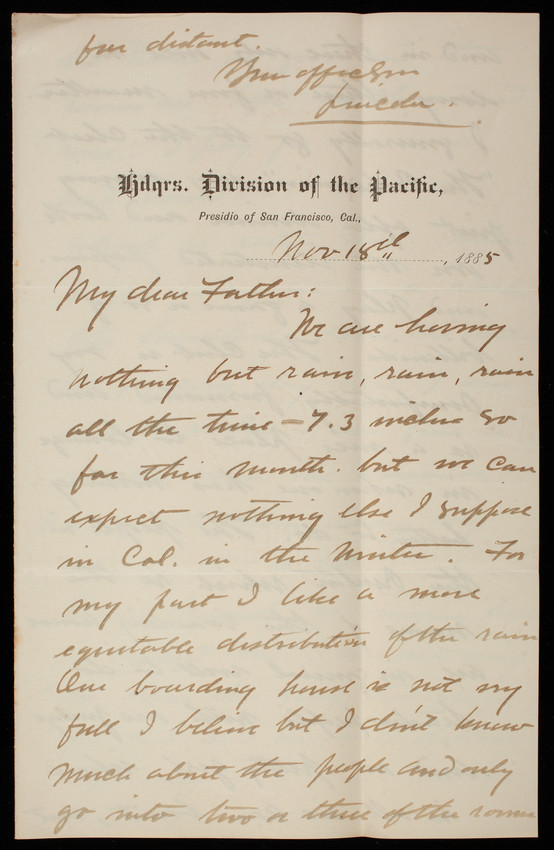 far distant.
Your aff. Son
Lincoln.
Hdqrs. Division of the Pacific,
Presidio of San Francisco, Cal.,
Nov 18th, 1885
My dear Father:
We are having
nothing but rain, rain, rain
all the time – 7.3 inches so
far this month. but we can
expect nothing else I suppose
in Cal. in the Winter. For
my part I like a more
equitable distribution of the rain
Our boarding house is not very
full I believe but I don't know
much about the people and only
go into two or three of the rooms